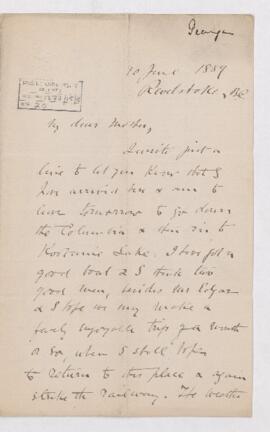 George
10 June 1889
Revelstoke, B.C.
My dear Mother,
I write just a
line to let you know that I
have arrived here & am to
leave tomorrow to go down
the Columbia & then on to
Kootanie Lake. I have got a
good boat & I think two
good men, besides
& I hope we may make a
fairly enjoyable trip for a month
or so, when I shall
to return to this place & again
strike the railway. The weather